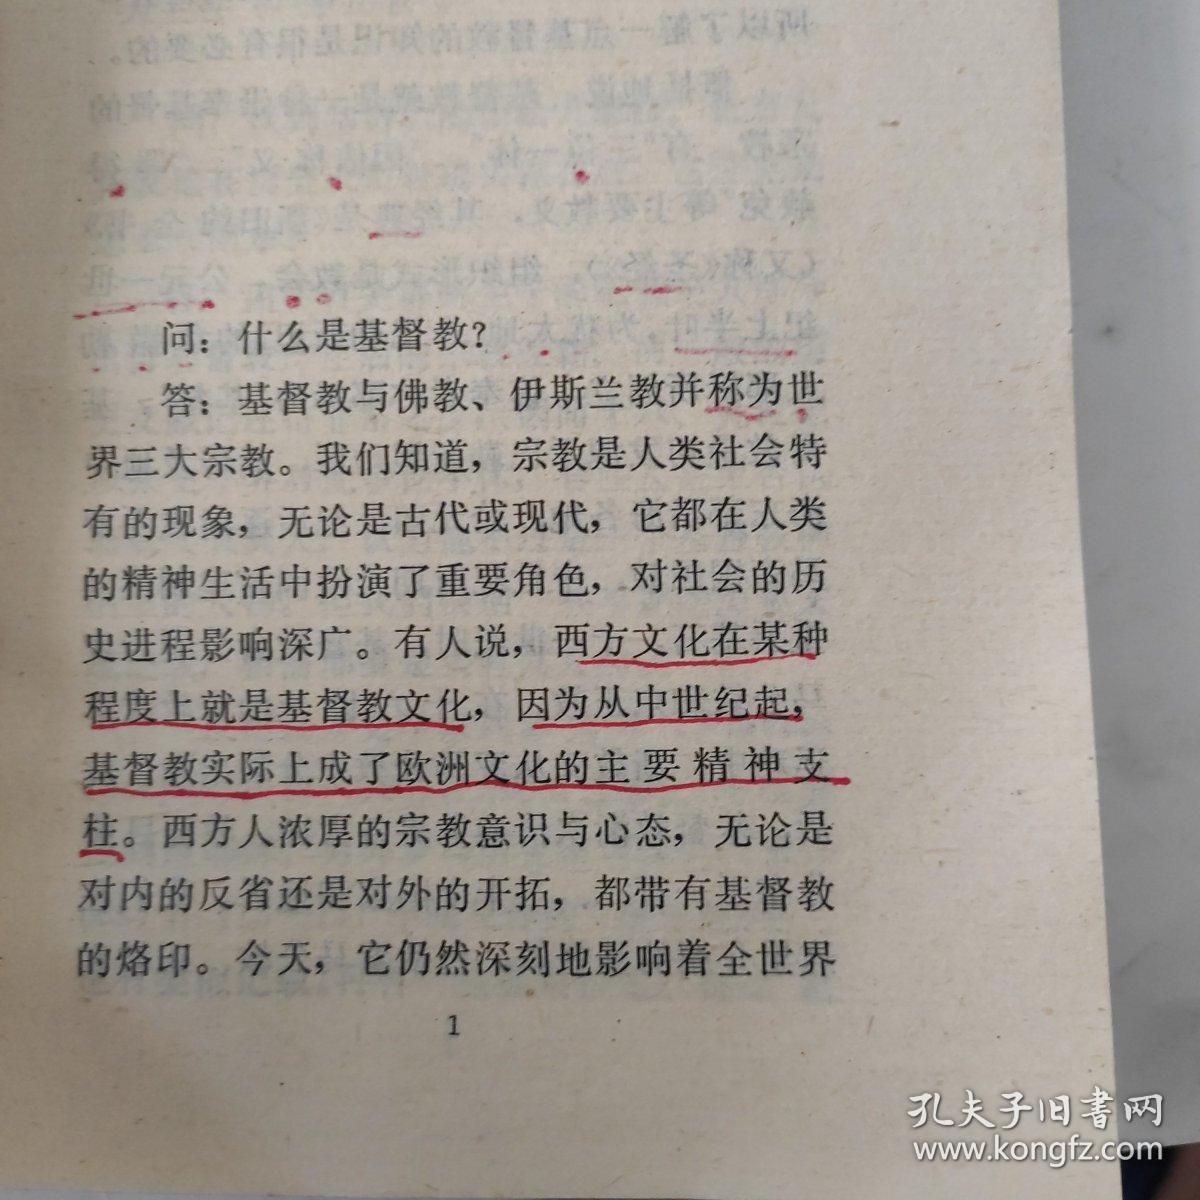 问：什么是基督教？
答：基督教与佛教、伊斯兰教并称为世
界三大宗教。我们知道，宗教是人类社会特
有的现象，无论是古代或现代，它都在人类
的精神生活中扮演了重要角色，对社会的历
史进程影响深广。有人说，西方文化在某种
程度上就是基督教文化，因为从中世纪起，
基督教实际上成了欧洲文化的主要精神支
柱。西方人浓厚的宗教意识与心态，无论是
对内的反省还是对外的开拓，都带有基督教
的烙印。今天，它仍然深刻地影响着全世界
1
孔夫子旧书网
www.kongfz.com